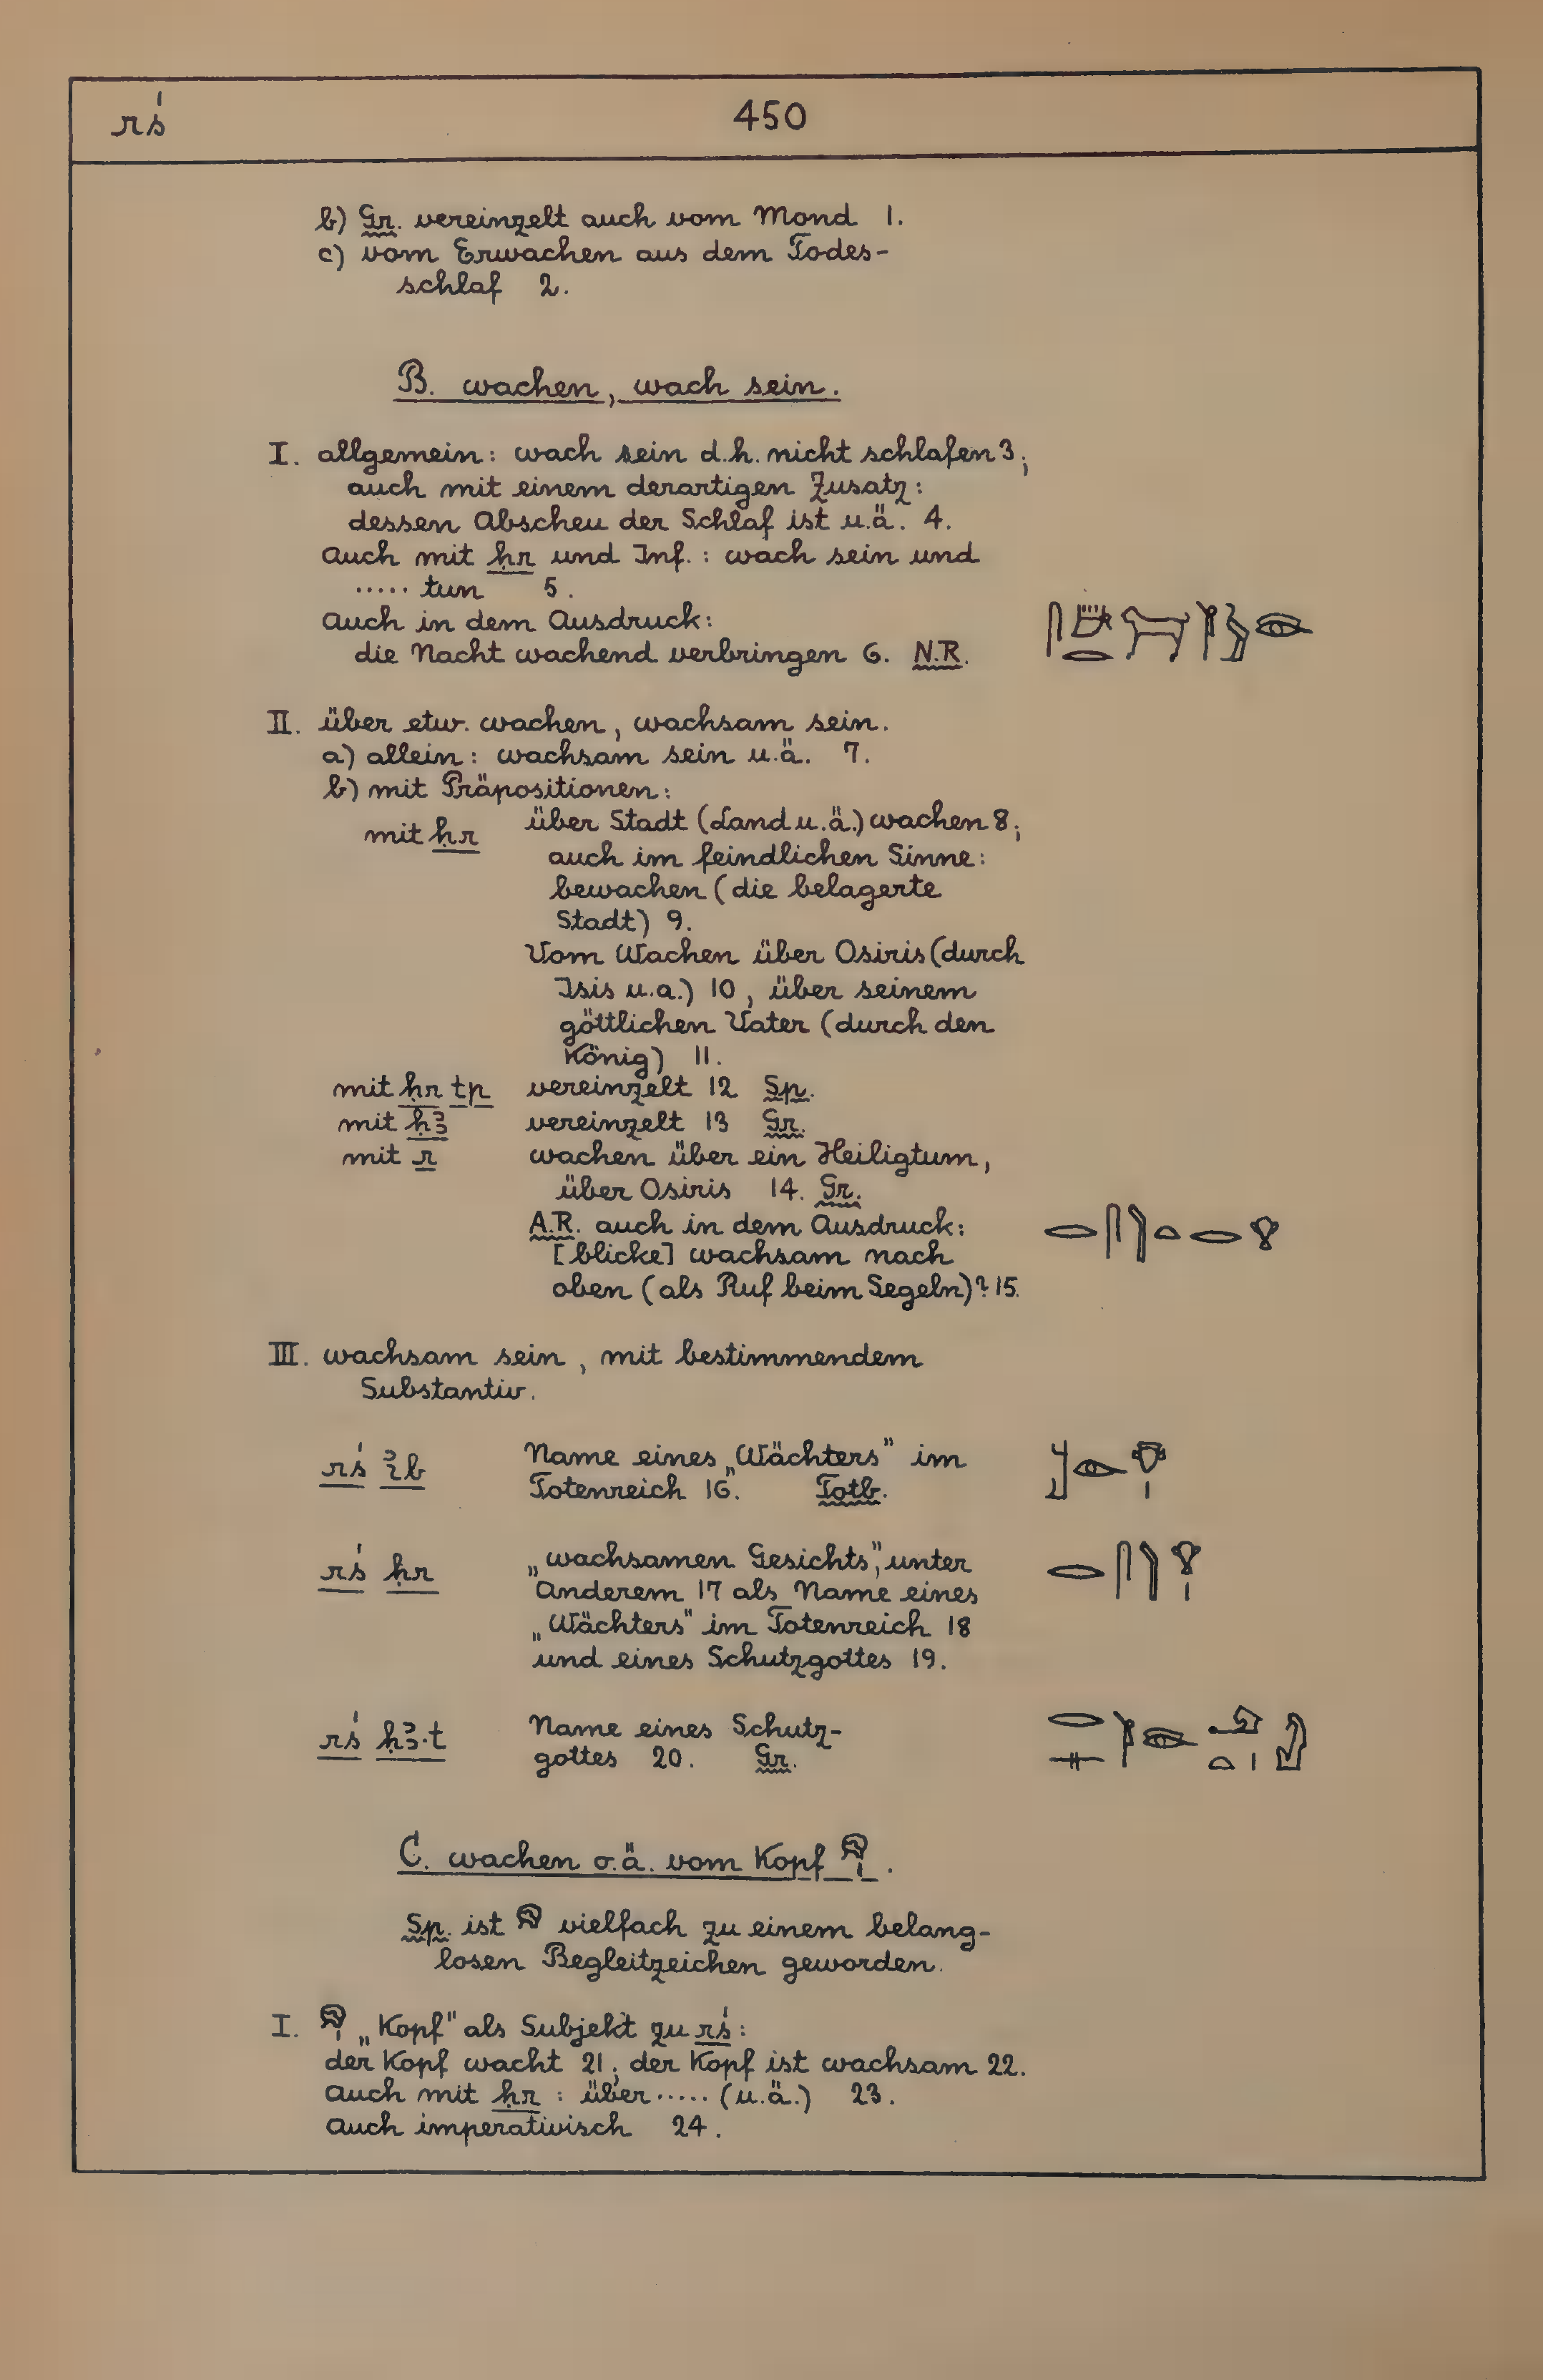 rś 450
b) Gr. vereinzelt auch vom Mond 1.
c) vom Erwachen aus dem Todes-
schlaf 2.
B. wachen, wach sein.
I. allgemein: wach sein d.h. nicht schlafen 3;
auch mit einem derartigen Zusatz:
dessen Abscheu der Schlaf ist u.ä. 4.
Auch mit ḥr und Inf.: wach sein und
..... tun 5.
Auch in dem Ausdruck:
die Nacht wachend verbringen 6. N.R.
II. über etw. wachen, wachsam sein.
a) allein: wachsam sein u.ä. 7.
b) mit Präpositionen:
mit ḥr über Stadt (Land u.ä.) wachen 8;
auch im feindlichen Sinne:
bewachen (die belagerte
Stadt) 9.
Vom Wachen über Osiris (durch
Isis u.a.) 10, über seinem
göttlichen Vater (durch den
König) 11.
mit ḥr tp vereinzelt 12 Sp.
mit ḥꜣ vereinzelt 13 Gr.
mit r wachen über ein Heiligtum,
über Osiris 14. Gr.
A.R. auch in dem Ausdruck:
[blicke] wachsam nach
oben (als Ruf beim Segeln)? 15.
III. wachsam sein, mit bestimmendem
Substantiv.
rś ꜣb Name eines „Wächters" im
Totenreich 16. Totb.
rś ḥr „wachsamen Gesichts", unter
Anderem 17 als Name eines
„Wächters" im Totenreich 18
und eines Schutzgottes 19.
rś ḥꜣ.t Name eines Schutz-
gottes 20. Gr.
C. wachen o.ä. vom Kopf 𓁶.
Sp. ist 𓁶 vielfach zu einem belang-
losen Begleitzeichen geworden.
I. 𓁶 „Kopf" als Subjekt zu rś:
der Kopf wacht 21; der Kopf ist wachsam 22.
Auch mit ḥr: über ..... (u.ä.) 23.
Auch imperativisch 24.